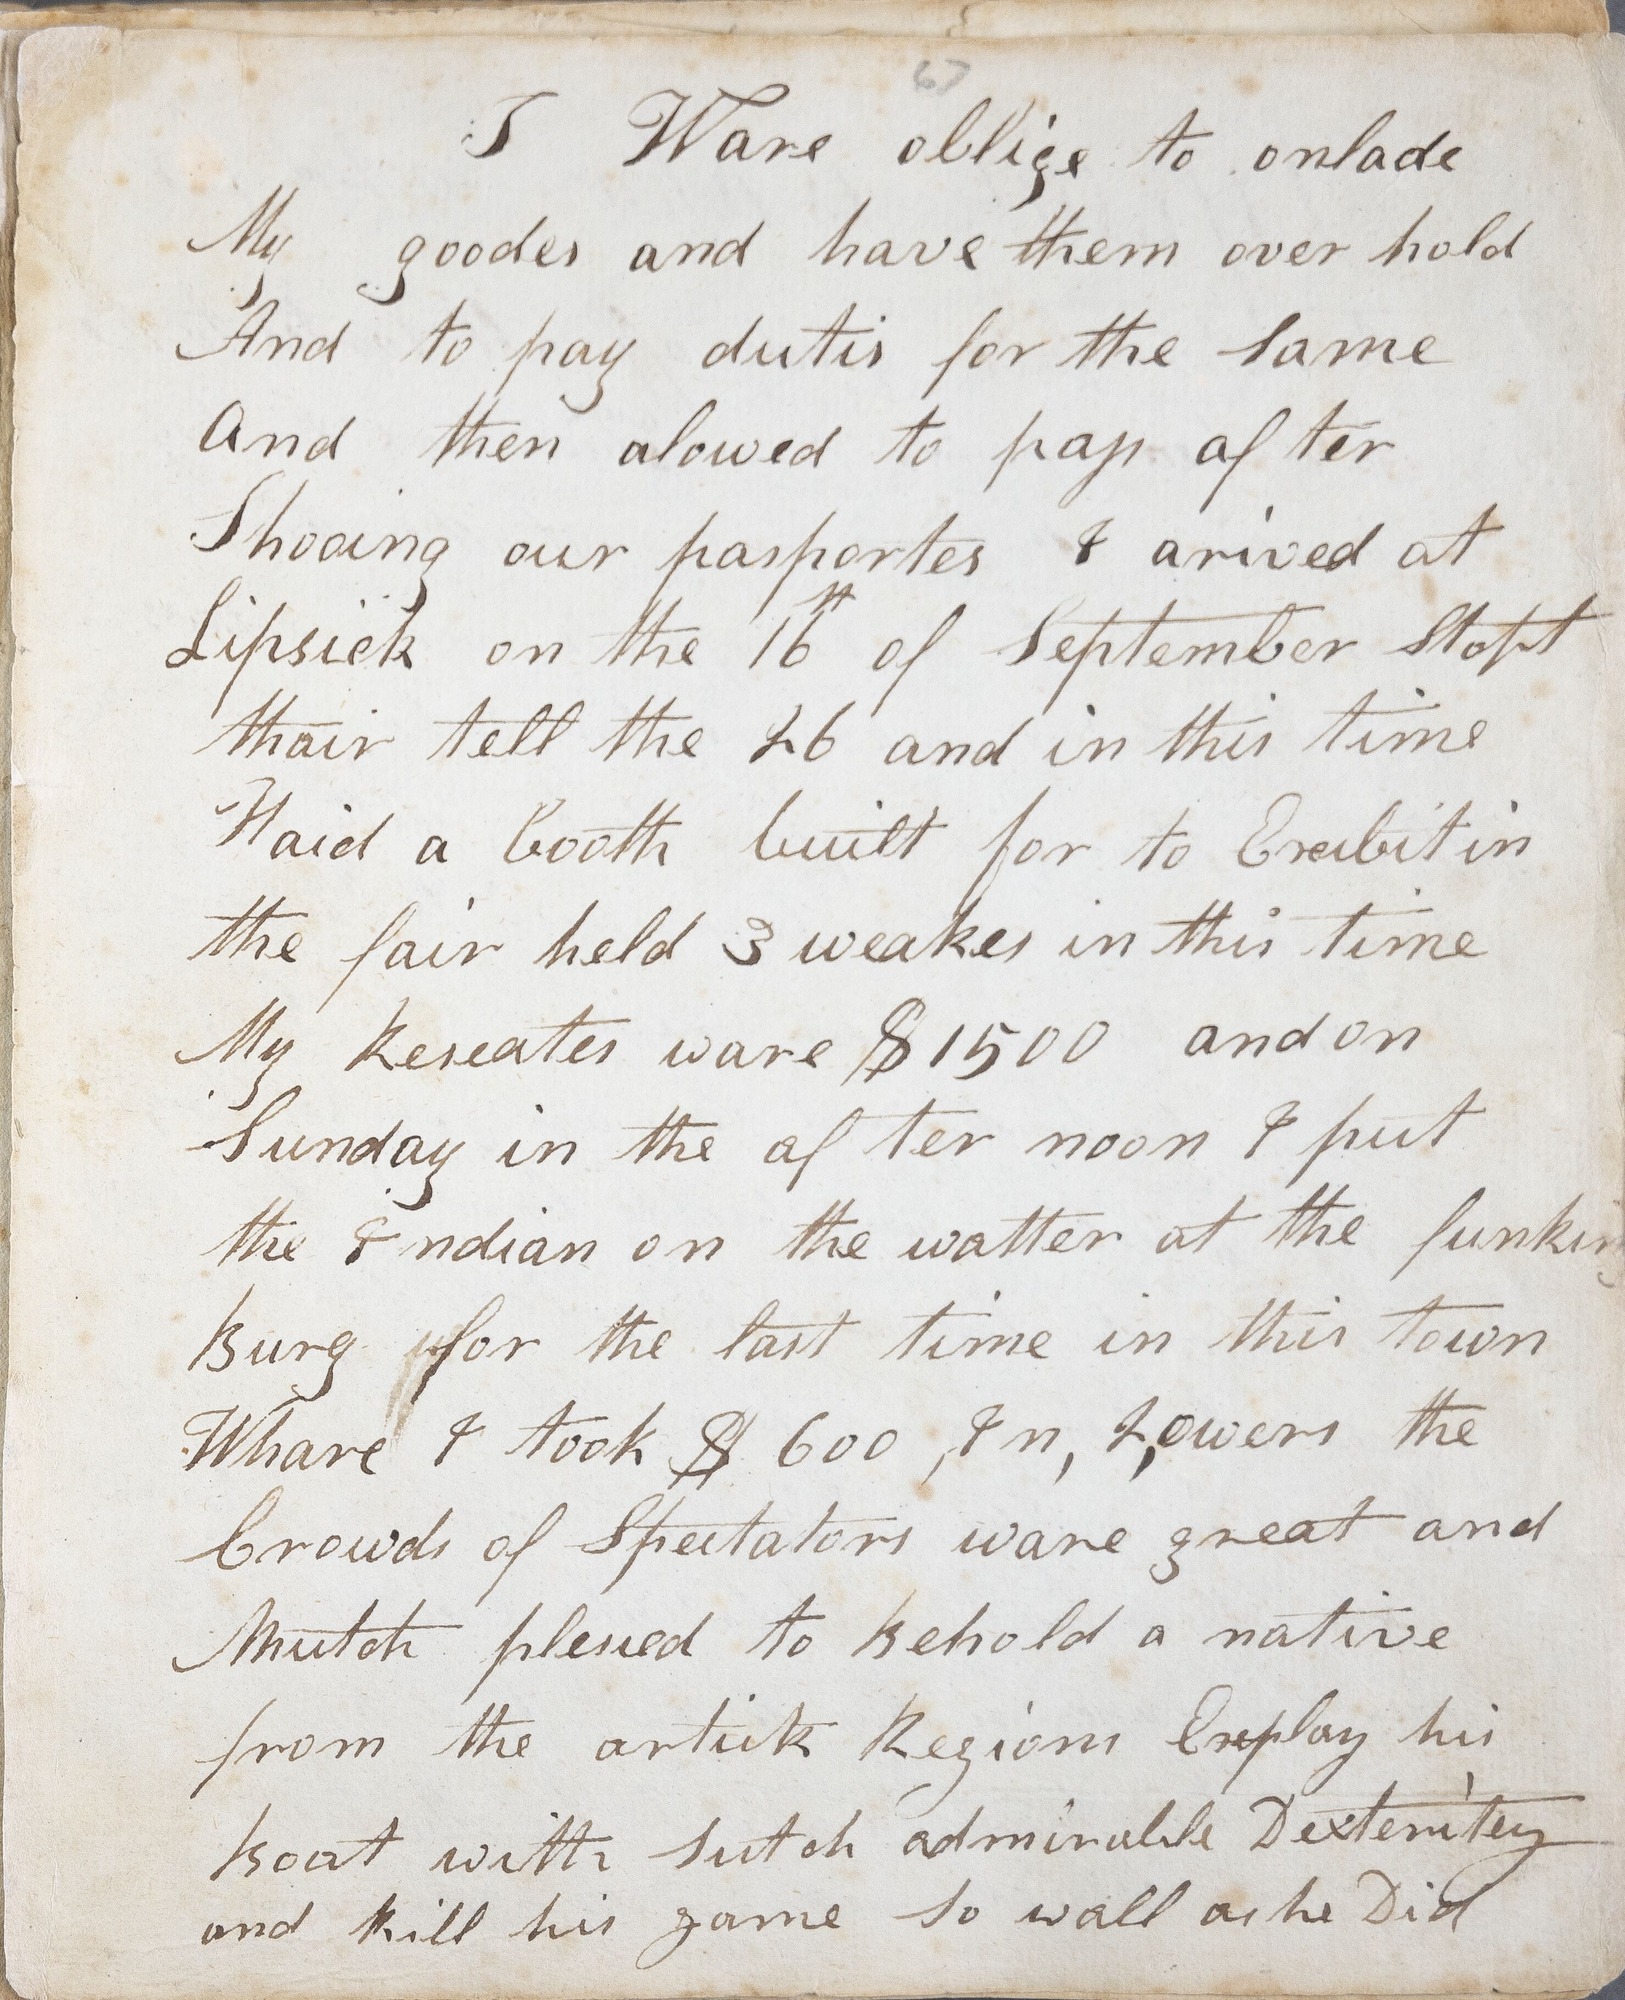 67
I Ware oblige to onlade
My goodes and have them over hold
And to pay dutis for the same
And then alowed to pass after
Shooing our pasportes I arived at
Lipsick on the 16th of September Stopt
thair tell the 26 and in this time
Haid a booth built for to Exebit in
the fair held 3 weakes in this time
My Reseates ware $1500 and on
Sunday in the af ter noon I put
the Indian on the watter at the funking
Burg for the last time in this town
Whare I took $600, In, 2, owers the
Crowds of Spectators ware great and
Mutch plesed to Behold a native
from the artick Regions Exploy his
Boat with sutch admirable Dexteritey
and kill his game so wall as he Did